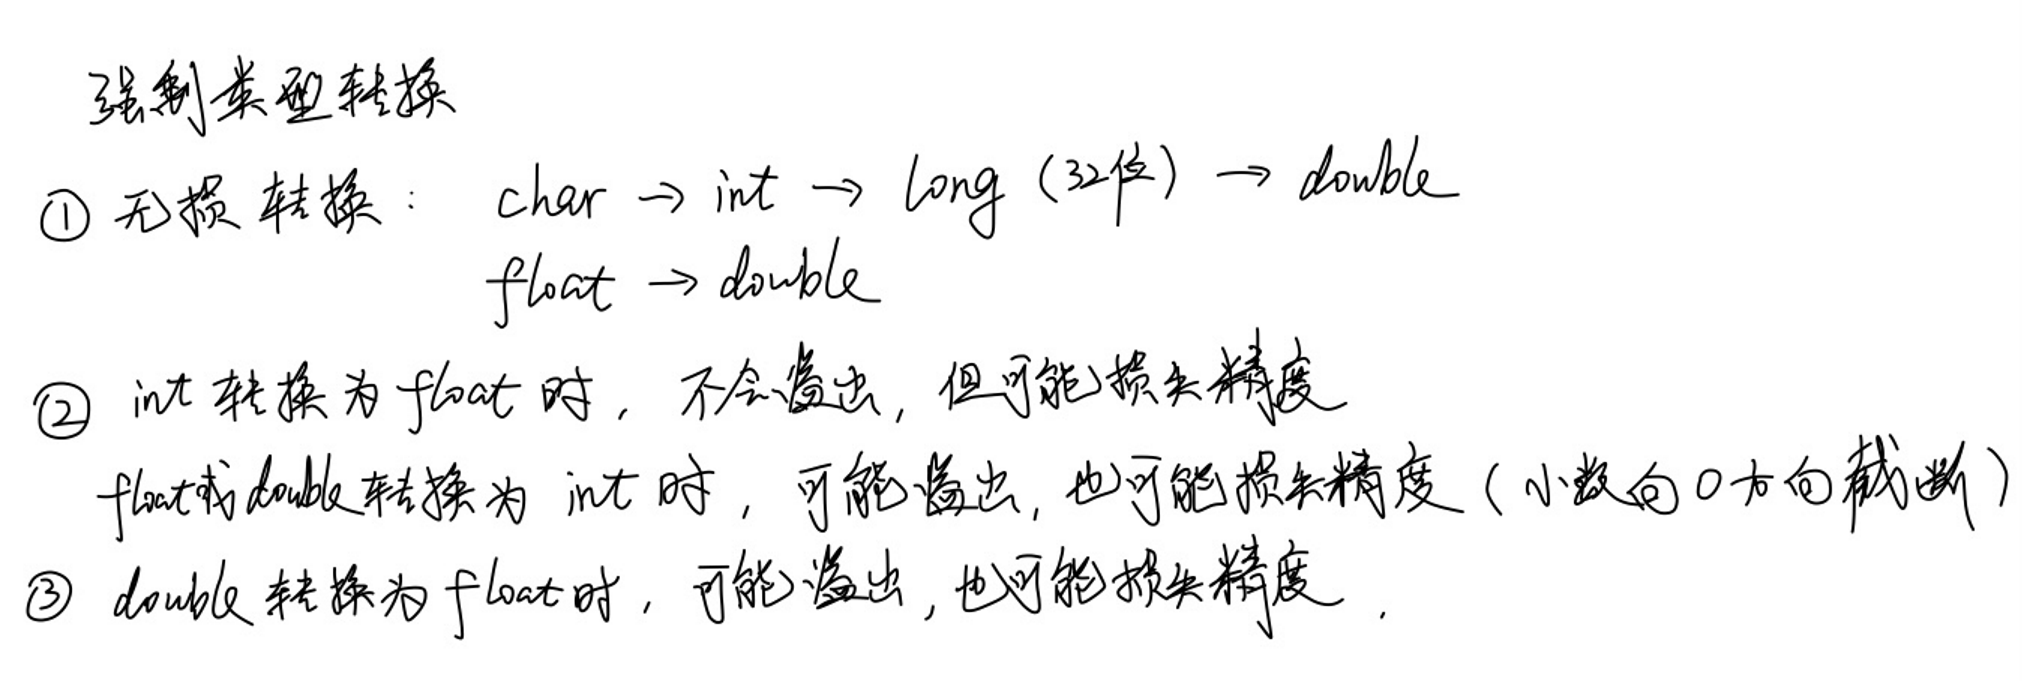 强制类型转换
① 无损转换： char → int → long (32位) → double
float → double
② int 转换为 float 时，不会溢出，但可能损失精度
float或double转换为 int 时，可能溢出，也可能损失精度（小数向0方向截断）
③ double 转换为 float时，可能溢出，也可能损失精度．